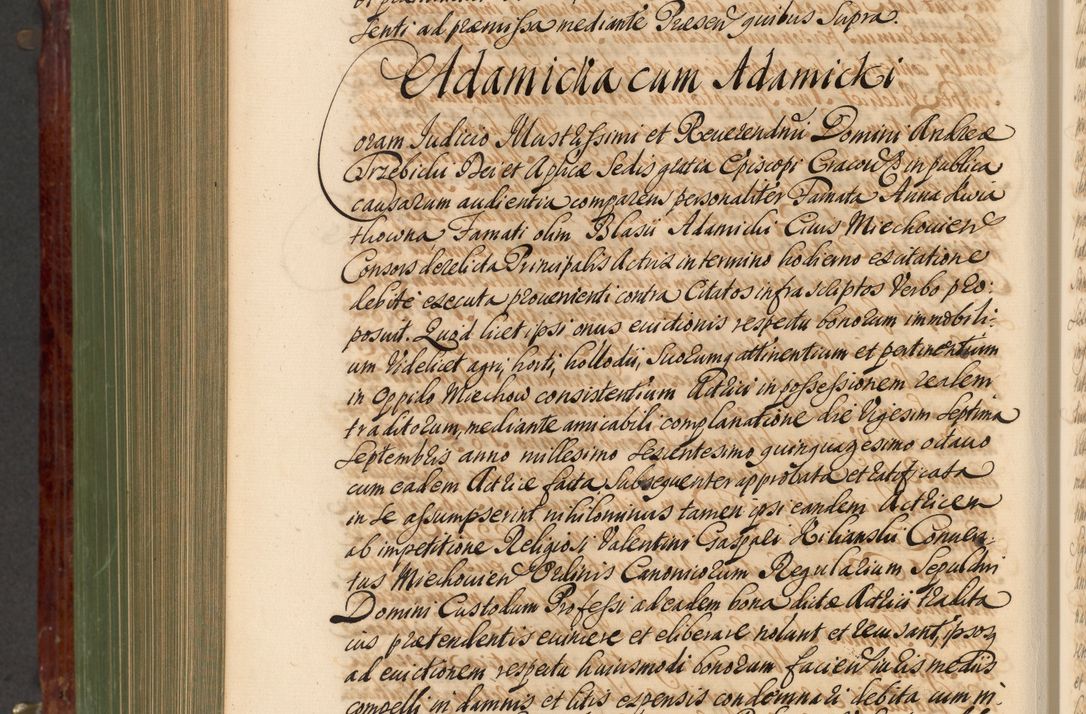 senti ad præmissa mediante Præsen quibus supra.
Adamicka cum Adamicki
oram Judicio Illustrissimi et Reverendmi Domini Andreæ
Trzebicki Dei et Aplicæ Sedis gratia Episcopi Cracov in publica
causarum audientia comparens personaliter Famata Anna
thowna Famati olim Blasii Adamicki Civis Miechovien
Consors derelicta Principalis Actrix in termino hodierno ex citatione
debite executa provenienti contra Citatos infrascriptos Verbo pro:
posuit. Quod licet ipsi onus evictionis respectu bonorum immobili:
um videlicet agri, horti, hollodii, suorumq attinentium et pertinentium
in oppido Miechow consistentium Actrici in possessionem realem
traditorum, mediante amicabili complanatione die Vigesim Septima
Septembris anno millesimo sexcentesimo quinquagesimo octavo
cum eadem Actrice facta, subsequenter approbata et ratificata
in se assumpserint nihilominus tamen ipsi eandem Actricem
ab impetitione Religiosi Valentini Gaspari Kilianskii Conven:
tus Miechovien Ordinis Canonicorum Regularium Sepulchri
Domini Custodum Professi ad eadem bona dictæ Actrici tradita
ius prætendentis evincere et eliberare nolunt et recusant, ipsos
ad evictionem respectu huiusmodi bonorum facien iuris mediis
compelli in damnis et litis expensis condemnari debita cum in